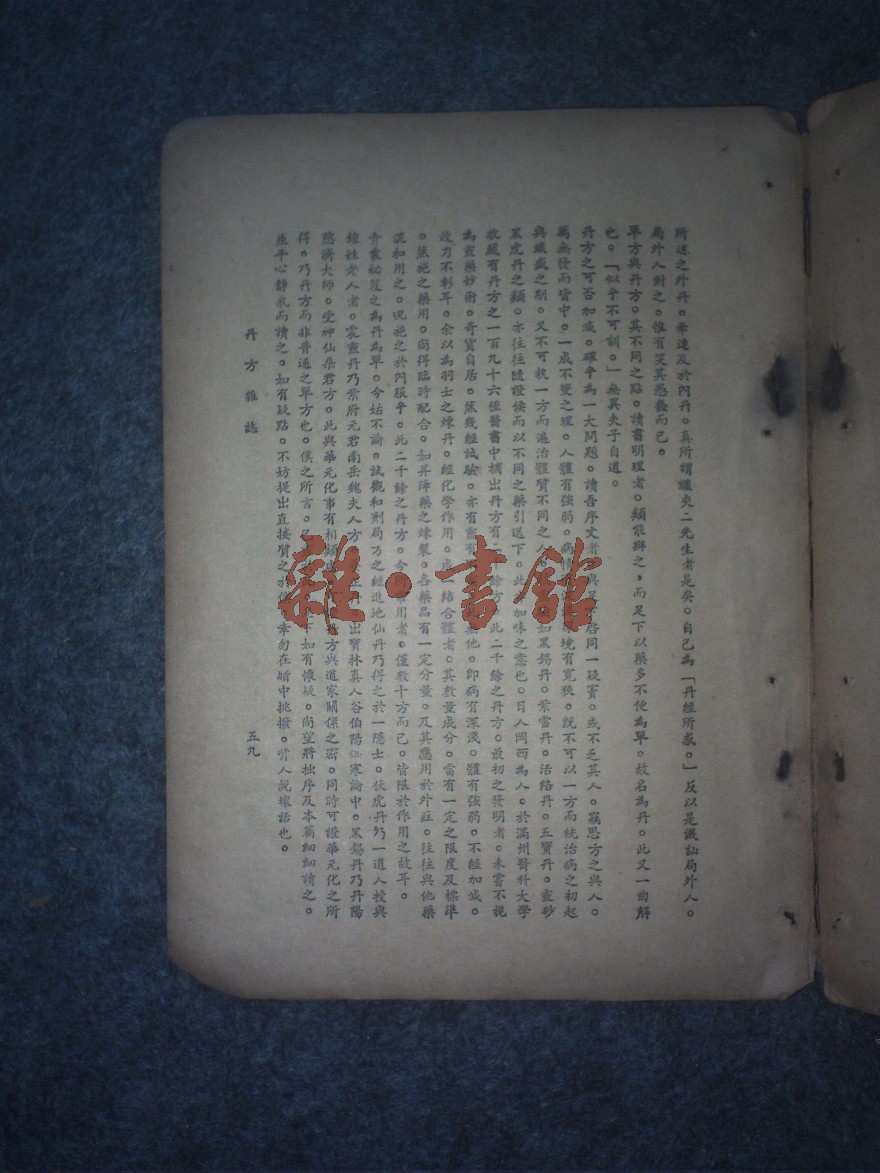 所述之外丹。牽連及於內丹。真所謂纏夾二先生者是矣。自己為「丹經所惑。」反以是譏訕局外人。
局外人對之。惟有笑其愚蠢而已。
單方與丹方。其不同之點。讀書明理者。類能辨之。而足下以藥多不便為單。故名為丹。此又一曲解
也。「似乎不可訓。」無異夫子自道。
丹方之可否加減。確乎為一大問題。讀吾序文者。與足下啓同一疑竇。或不乏其人。竊思方之與人。
萬無發而皆中。一成不變之理。人體有強弱。病情 環境有寬狹。既不可以一方而統治病之初起
與熾盛之期。又不可執一方而遍治體質不同之人。 如黑錫丹。紫雪丹。活絡丹。玉寶丹。靈砂
黑虎丹之類。亦往往隨證候而以不同之藥引送下。此 加味之意也。日人岡西為人。於滿州醫科大學
收藏有丹方之一百九十六種醫書中摘出丹方有二 餘方。此二千餘之丹方。最初之發明者。未嘗不視
為靈藥妙術。奇貨自居。然幾經試驗。亦有靈有 無他。卽病有深淺。體有強弱。不經加減。
效乃不彰耳。余以為羽士之煉丹。經化學作用。成 結合體者。其數量成分。當有一定之限度及標準
。然施之藥用。尚得臨時配合。如昇降藥之煉製。各藥品有一定分量。及其應用於外症。往往與他藥
混和用之。况施之於內服乎。此二千餘之丹方。今所常用者。僅數十方而已。皆限於作用之故耳。
青囊秘笈之為丹為單。今姑不論。試觀和剂局方之經進地仙丹乃得之於一隱士。伏虎丹乃一道人授與
鍾姓老人者。震靈丹乃紫府元君南岳魏夫人方。 出寶林真人谷伯陽傷寒論中。黑錫丹乃丹陽
慈濟大師。受神仙桑君方。此與華元化事有相類 丹方與道家關係之密。同時可證華元化之所
得。乃丹方而非普通之單方也。僕之所言。 下如有懷疑。尚望將拙序及本篇細細讀之。
並平心靜氣而讀之。如有疑點。不妨提出直接質之於僕。幸勿在暗中挑撥。背人說壞話也。
丹方雜誌
五九
雜·書館